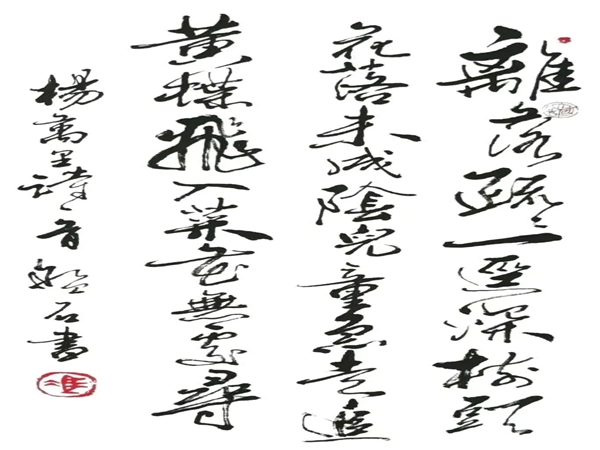 離落疏疏一逕深樹頭
花落未成陰兒童急走追
黃蝶飛入菜花無處尋
楊萬里詩一首石書